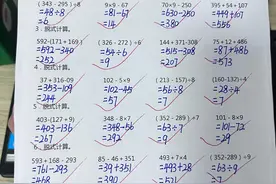 (343 - 295) ÷ 8  9 × 9 - 67  70 × 9 - 250  395 + 54 + 107
=48÷8  =81-67  =630-250  =449+107
=6  =14  =380  =556
3. 脱式计算。
592-(171 + 169)  (326 - 272) ÷ 6  144 + 371-308  75 + 12 + 486
=592-340  =54÷6  =515-308  =87+486
=252  =9  =207  =573
4. 脱式计算。
37 + 316-09  102 - 5 × 9  (219-156) ÷ 9  (160-132) ÷ 4
=353-109  =102-45  =63÷9  =28÷4
=244  =57  =7  =7
5. 脱式计算。
403-(127 + 9)  348 - 8×7  (352-289) ÷ 7  101 - 8×9
=403-136  =348-56  =63÷7  =101-72
=267  =292  =9  =29
6. 脱式计算。
593 + 168 - 293  85 - 46 + 351  493 + 7×4  (352-289) ÷9
=761-293  =39+351  =493+28  =63÷9
=468  =390  =7